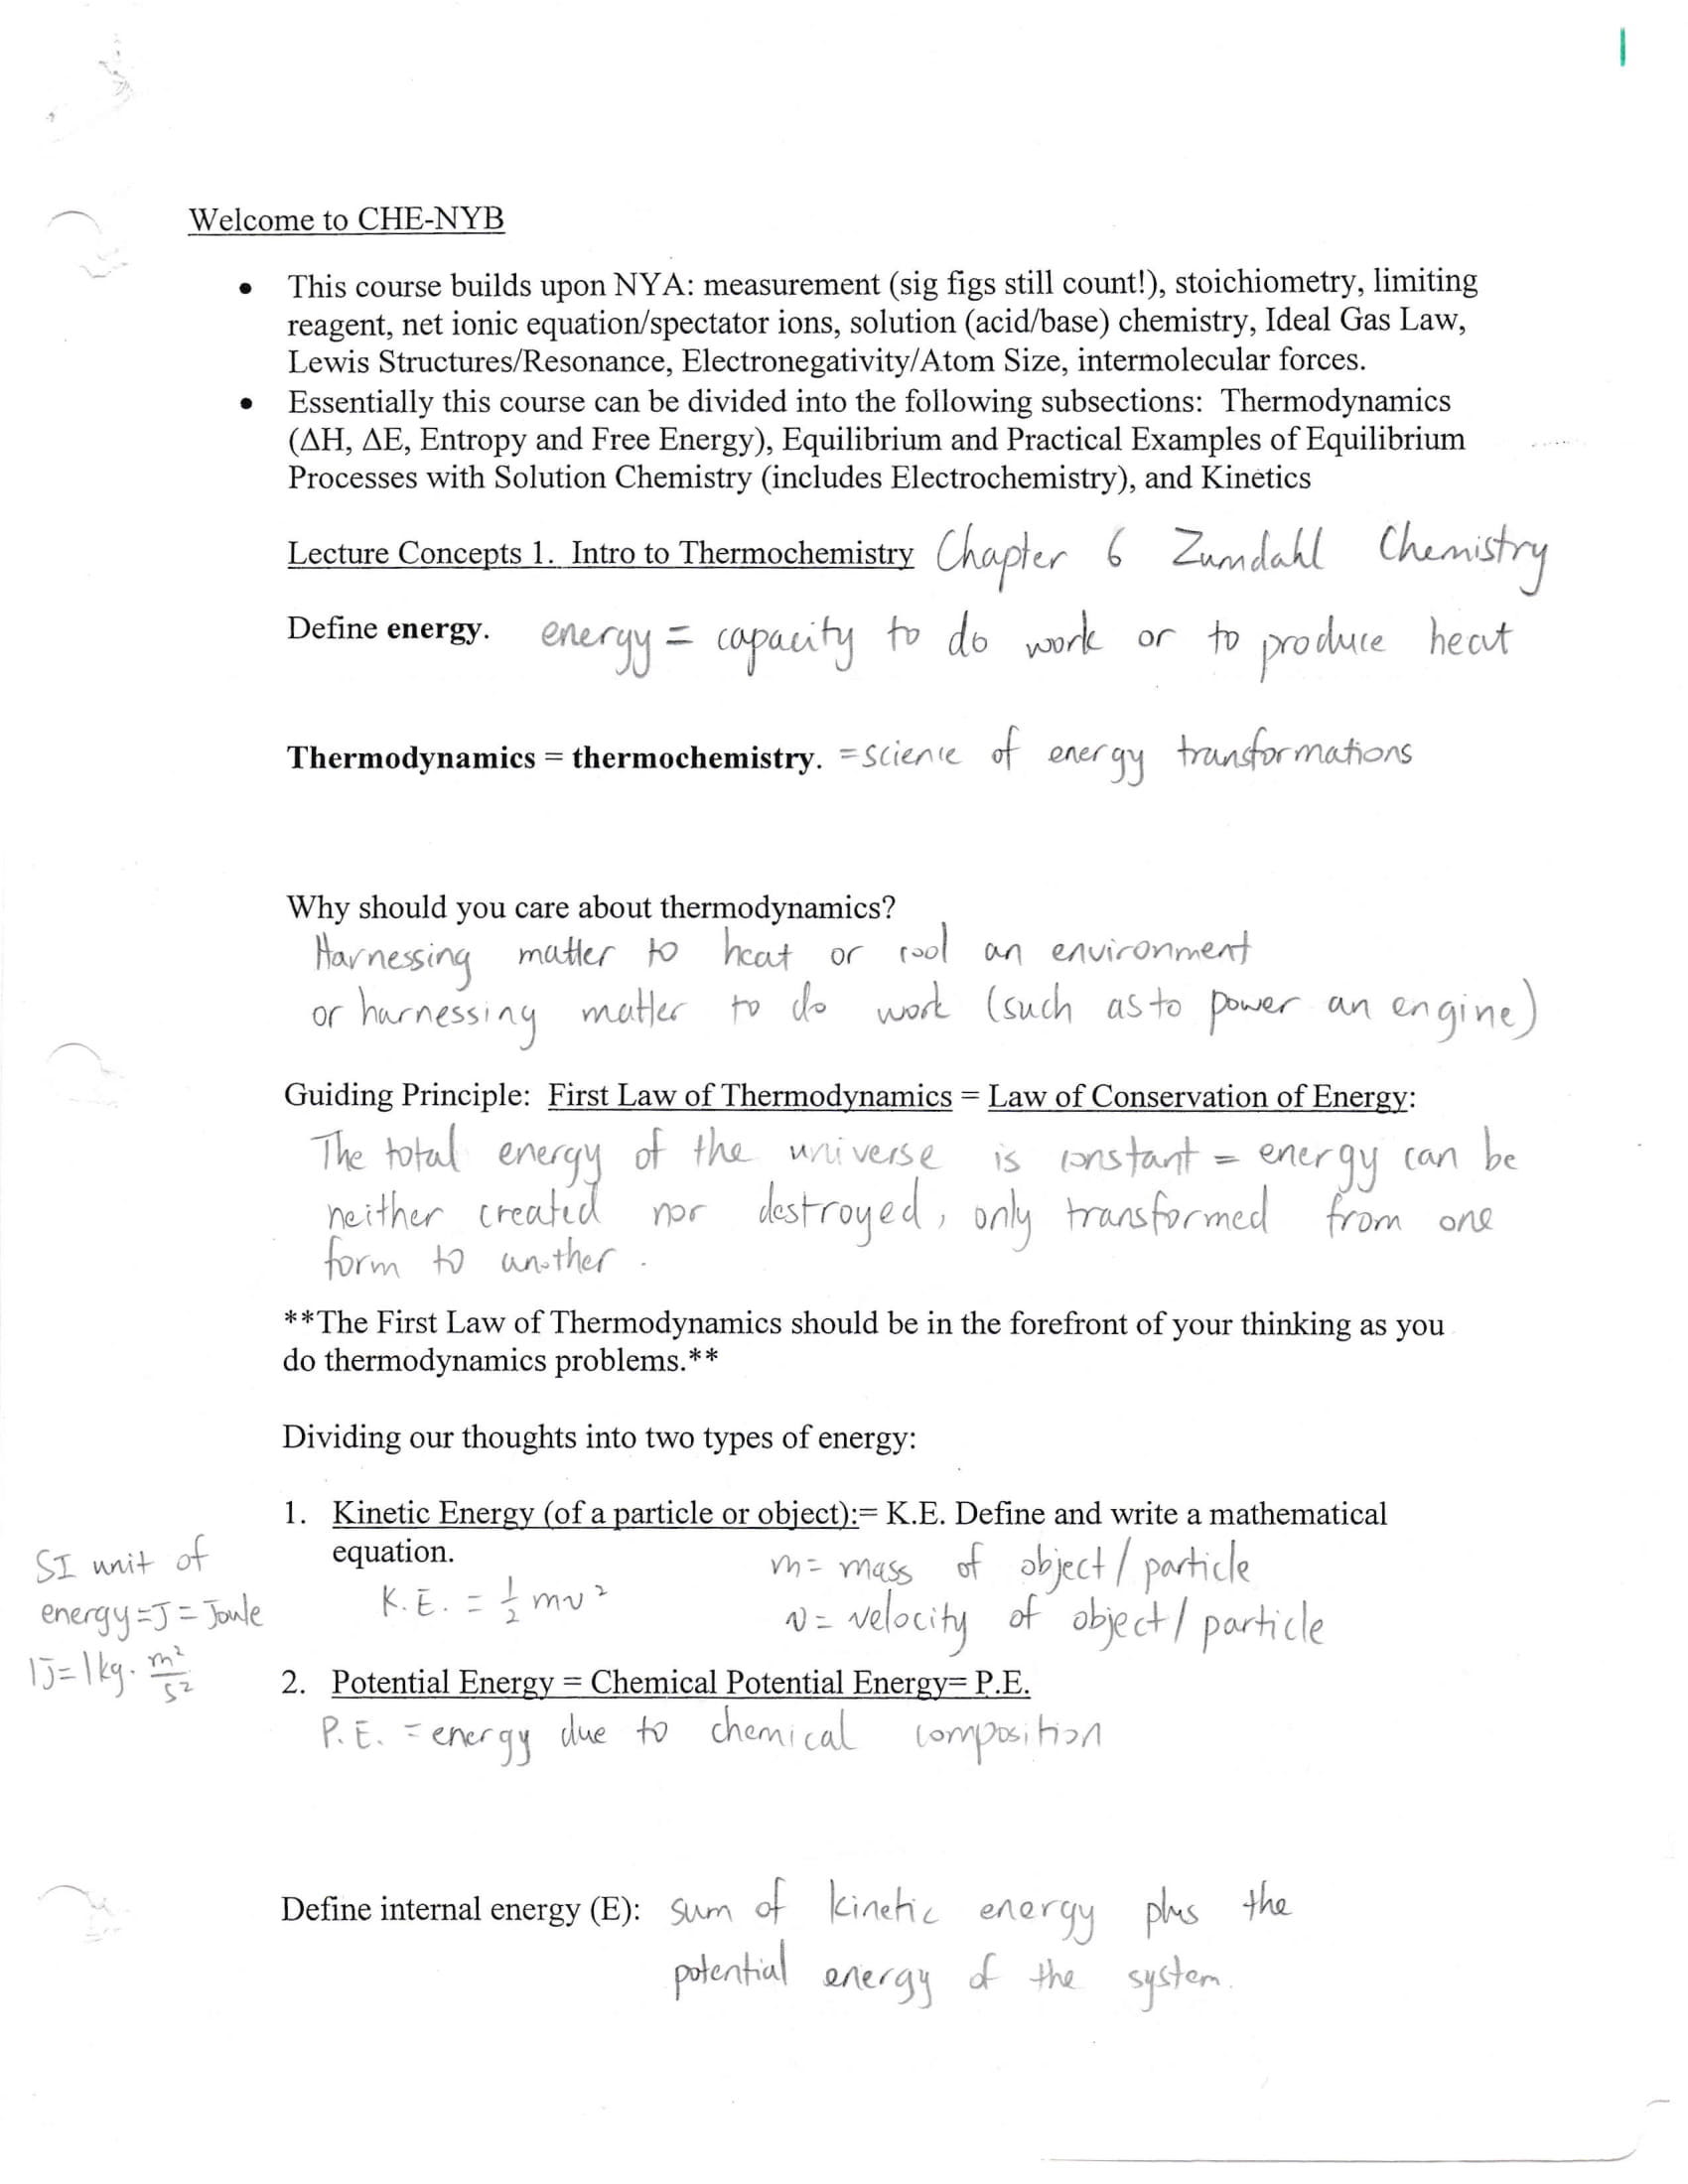 1
Welcome to CHE-NYB
• This course builds upon NYA: measurement (sig figs still count!), stoichiometry, limiting
reagent, net ionic equation/spectator ions, solution (acid/base) chemistry, Ideal Gas Law,
Lewis Structures/Resonance, Electronegativity/Atom Size, intermolecular forces.
• Essentially this course can be divided into the following subsections: Thermodynamics
(ΔH, ΔE, Entropy and Free Energy), Equilibrium and Practical Examples of Equilibrium
Processes with Solution Chemistry (includes Electrochemistry), and Kinetics
Lecture Concepts 1. Intro to Thermochemistry Chapter 6 Zumdahl Chemistry
Define energy. energy = capacity to do work or to produce heat
Thermodynamics = thermochemistry. = science of energy transformations
Why should you care about thermodynamics?
Harnessing matter to heat or cool an environment
or harnessing matter to do work (such as to power an engine)
Guiding Principle: First Law of Thermodynamics = Law of Conservation of Energy:
The total energy of the universe is constant = energy can be
neither created nor destroyed, only transformed from one
form to another.
**The First Law of Thermodynamics should be in the forefront of your thinking as you
do thermodynamics problems.**
Dividing our thoughts into two types of energy:
1. Kinetic Energy (of a particle or object):= K.E. Define and write a mathematical
equation.
m = mass of object/particle
K.E. = 1/2 mv²
v = velocity of object/particle
SI unit of
energy = J = Joule
1J = 1kg · m²/s²
2. Potential Energy = Chemical Potential Energy= P.E.
P.E. = energy due to chemical composition
Define internal energy (E): sum of kinetic energy plus the
potential energy of the system.